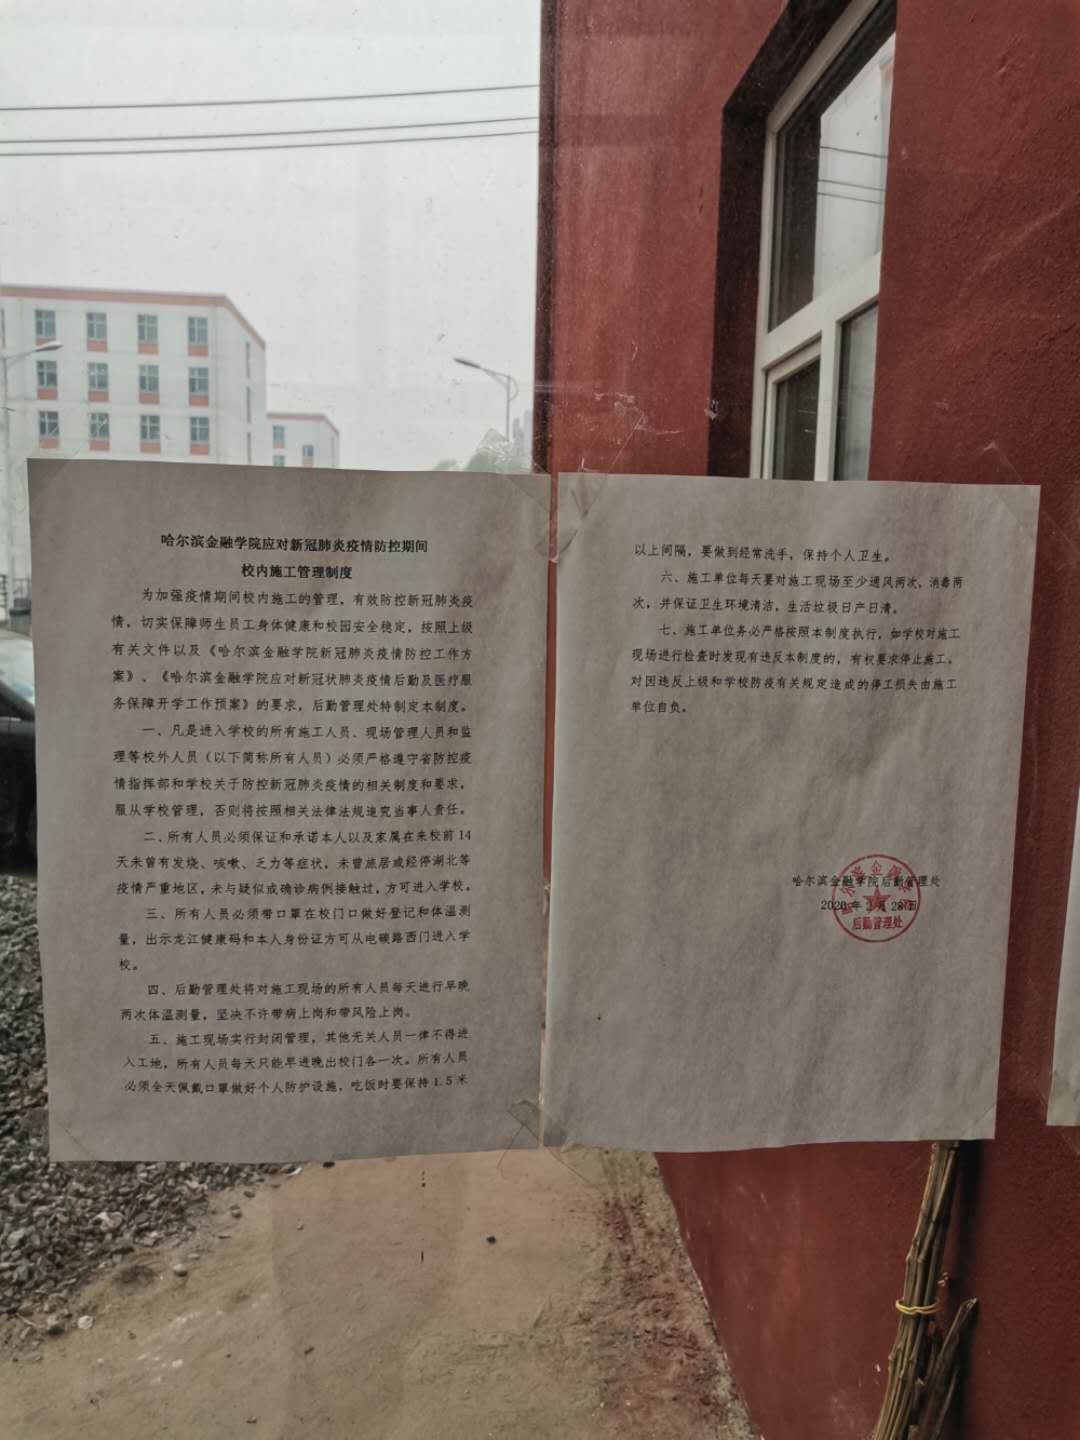 哈尔滨金融学院应对新冠肺炎疫情防控期间
校内施工管理制度
为加强疫情期间校内施工的管理，有效防控新冠肺炎疫
情，切实保障师生员工身体健康和校园安全稳定，按照上级
有关文件以及《哈尔滨金融学院新冠肺炎疫情防控工作方
案》、《哈尔滨金融学院应对新冠状肺炎疫情后勤及医疗服
务保障开学工作预案》的要求，后勤管理处特制定本制度。
一、凡是进入学校的所有施工人员、现场管理人员和监
理等校外人员（以下简称所有人员）必须严格遵守省防控疫
情指挥部和学校关于防控新冠肺炎疫情的相关制度和要求，
服从学校管理，否则将按照相关法律法规追究当事人责任。
二、所有人员必须保证和承诺本人以及家属在来校前14
天未曾有发烧、咳嗽、乏力等症状，未曾旅居或经停湖北等
疫情严重地区，未与疑似或确诊病例接触过，方可进入学校。
三、所有人员必须带口罩在校门口做好登记和体温测
量，出示龙江健康码和本人身份证方可从电碳路西门进入学
校。
四、后勤管理处将对施工现场的所有人员每天进行早晚
两次体温测量，坚决不许带病上岗和带风险上岗。
五、施工现场实行封闭管理，其他无关人员一律不得进
入工地，所有人员每天只能早进晚出校门各一次。所有人员
必须全天佩戴口罩做好个人防护设施，吃饭时要保持1.5米
以上间隔，要做到经常洗手，保持个人卫生。
六、施工单位每天要对施工现场至少通风两次，消毒两
次，并保证卫生环境清洁，生活垃圾日产日清。
七、施工单位务必严格按照本制度执行，如学校对施工
现场进行检查时发现有违反本制度的，有权要求停止施工。
对因违反上级和学校防疫有关规定造成的停工损失由施工
单位自负。
哈尔滨金融学院后勤管理处
2020年 月28日
后勤管理处